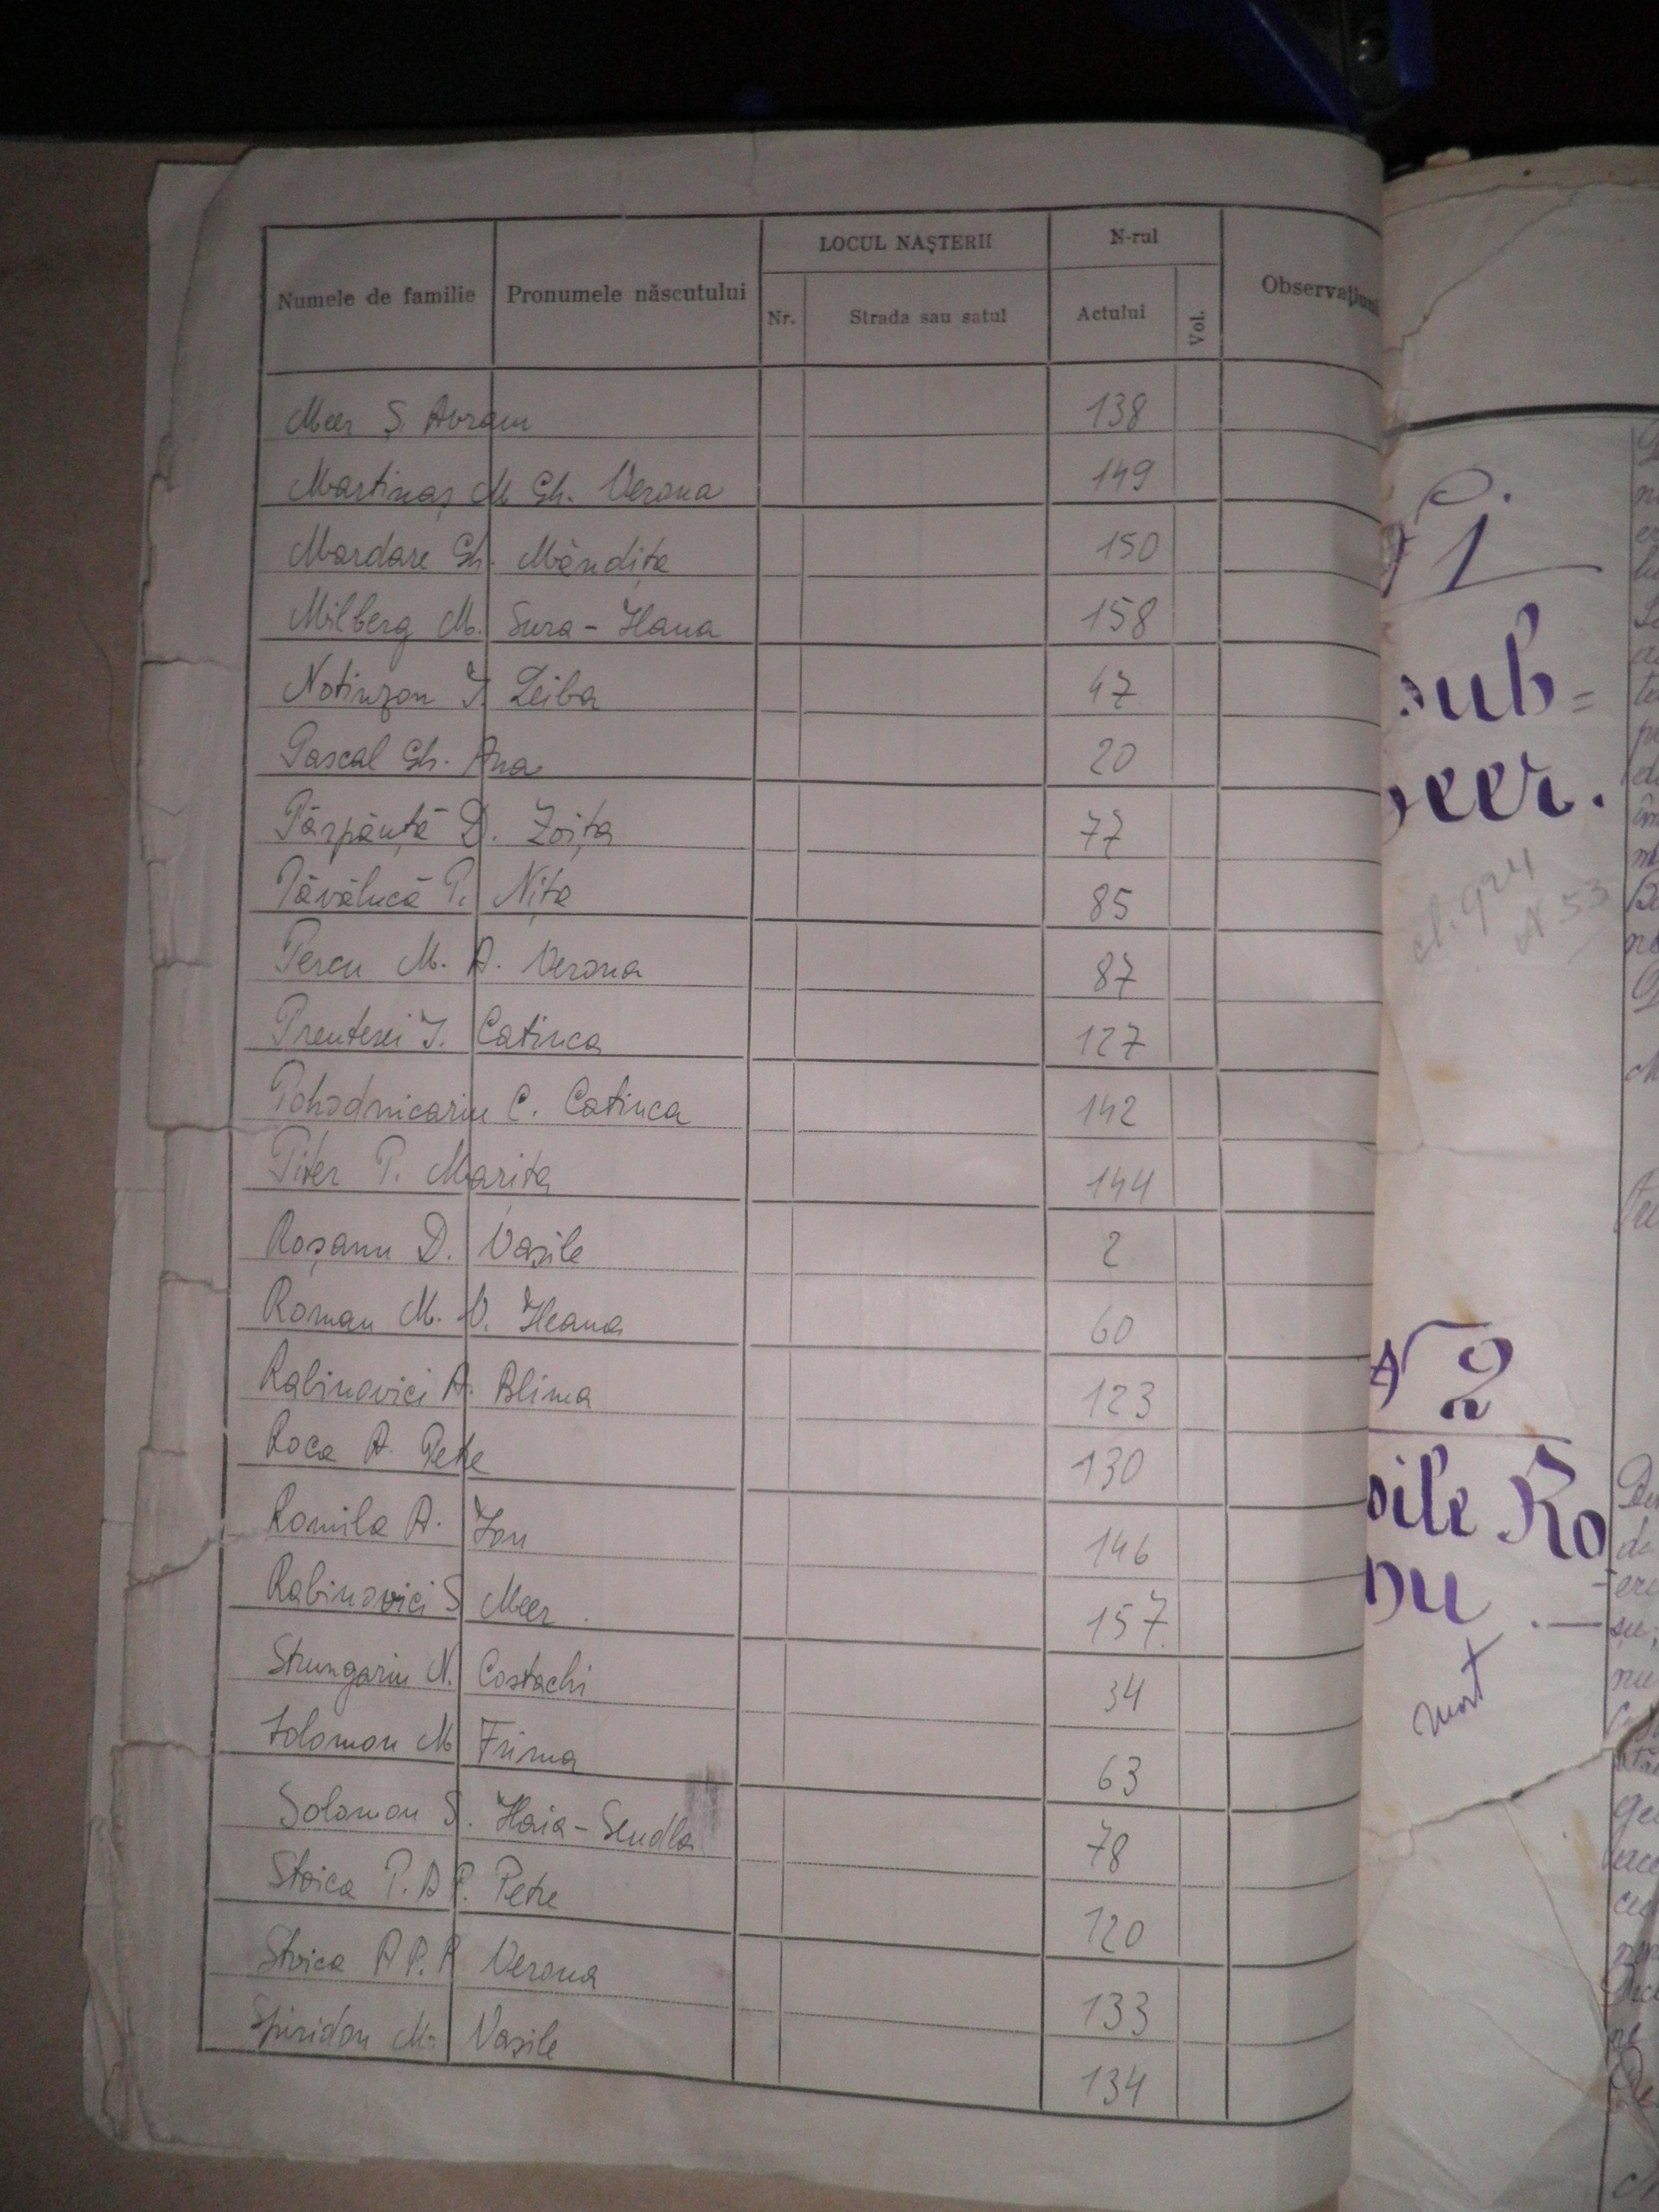 LOCUL NAȘTERII
N-rul
Numele de familie
Pronumele născutului
Nr.
Strada sau satul
Actului
Vol.
Meer Ș. Avram 138
Martinaș M Gh. Verona 149
Mardare Gh. Măndița 150
Milberg M. Sura-Hana 158
Notinzon I. Leiba 47
Pascal Gh. Ana 20
Părpăuță D. Zoița 77
Păvălucă P. Nița 85
Percu M. A. Verona 87
I. Catinca 127
Pohodnicariu C. Catinca 142
Piter P. Marița 144
Roșanu D. Vasile 2
Roman M. V. Ileana 60
Rabinovici A. Blima 123
Roca A. Petre 130
Romila A. Ion 146
Rabinovici S Meer 157
Strungariu N. Costachi 34
Solomon M Frima 63
Solomon S. Haia-Sendla 78
Stoica P. A P. Petre 120
Stoica A P. P Verona 133
Spiridon M. Vasile 134
1
sub=
eer.
N 53
N 2
sile Ro
nu.—
mort